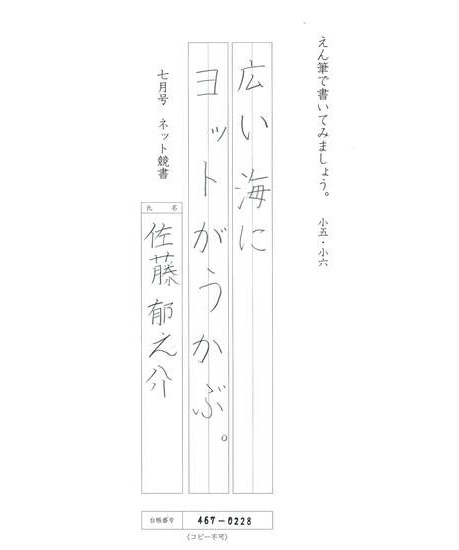 えん筆で書いてみましょう。 小五・小六
広い海に
ヨットがうかぶ。
七月号 ネット競書
氏名
佐藤郁之介
台帳番号 467-0228
(コピー不可)